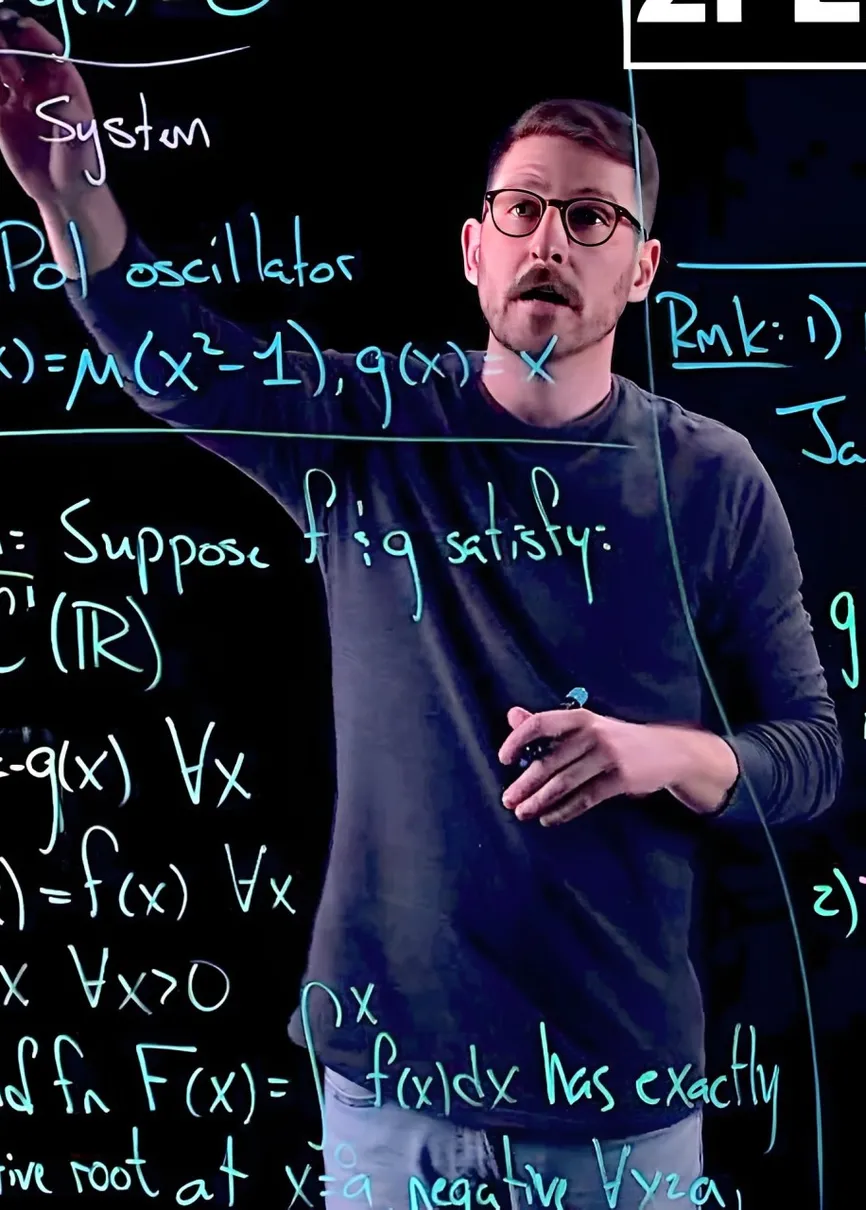 g(x)
System
Pol oscillator
x)=μ(x²-1), g(x)=x
: Suppose f & g satisfy:
C¹(ℝ)
-g(x) ∀x
)=f(x) ∀x
x ∀x>0
fn F(x)=∫₀ˣ f(x)dx has exactly
ive root at x=a negative
Rmk: 1)
Ja
g
2)